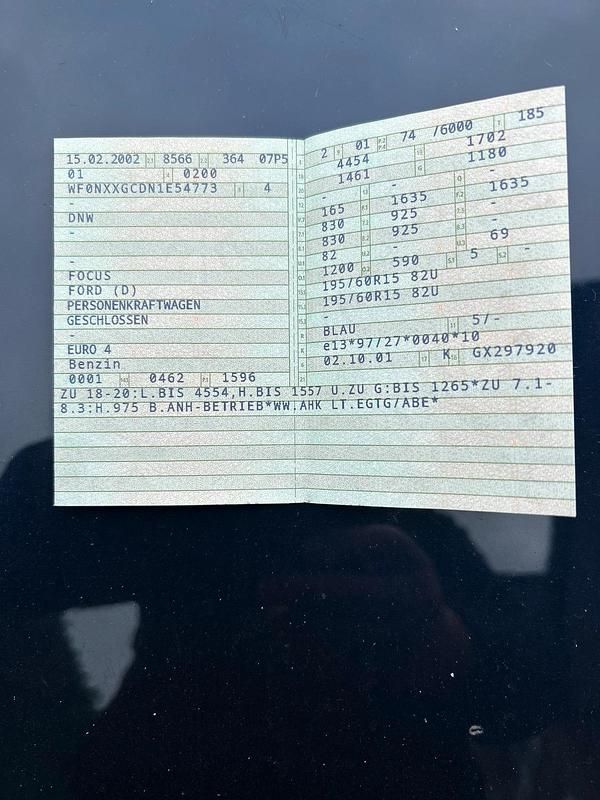 15.02.2002 8566 364 07P5
01 0200
WF0NXXGCDN1E54773 4
-
DNW
-
-
FOCUS
FORD (D)
PERSONENKRAFTWAGEN
GESCHLOSSEN
-
EURO 4
Benzin
0001 0462 1596
2 01 74 /6000 185
4454 1702
1461 1180
- - -
165 1635 1635
830 925 -
830 925 -
82 - 69
1200 590 5 -
195/60R15 82U
195/60R15 82U
-
BLAU 5/-
e13*97/27*0040*10
02.10.01 K GX297920
ZU 18-20:L.BIS 4554,H.BIS 1557 U.ZU G:BIS 1265*ZU 7.1-
8.3:H.975 B.ANH-BETRIEB*WW.AHK LT.EGTG/ABE*